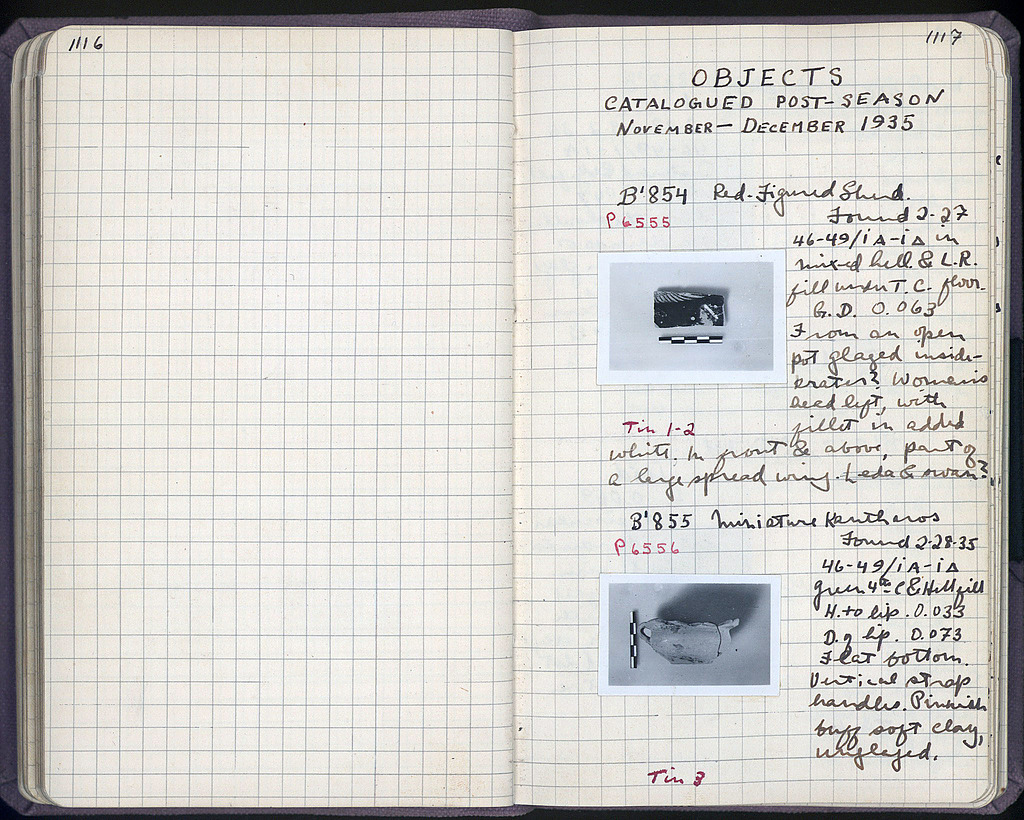 1116
1117
OBJECTS
CATALOGUED POST-SEASON
NOVEMBER — DECEMBER 1935
B'854 Red-Figured Sherd.
P 6555
Found 2-27
46-49/iA-iΔ in
mixed hell. & L.R.
fill under T.C. floor.
G.D. 0.063
From an open
pot glazed inside-
krater? Woman's
head left, with
Tin 1-2
fillet in added
white. In front & above, part of
a large spread wing. Leda & swan?
B'855 Miniature Kantharos
P 6556
Found 2-28-35
46-49/iA-iΔ
green 4th C & Hell fill
H. to lip. 0.033
D. of lip. 0.073
Flat bottom.
Vertical strap
handles. Pinkish
buff soft clay,
unglazed.
Tin 3